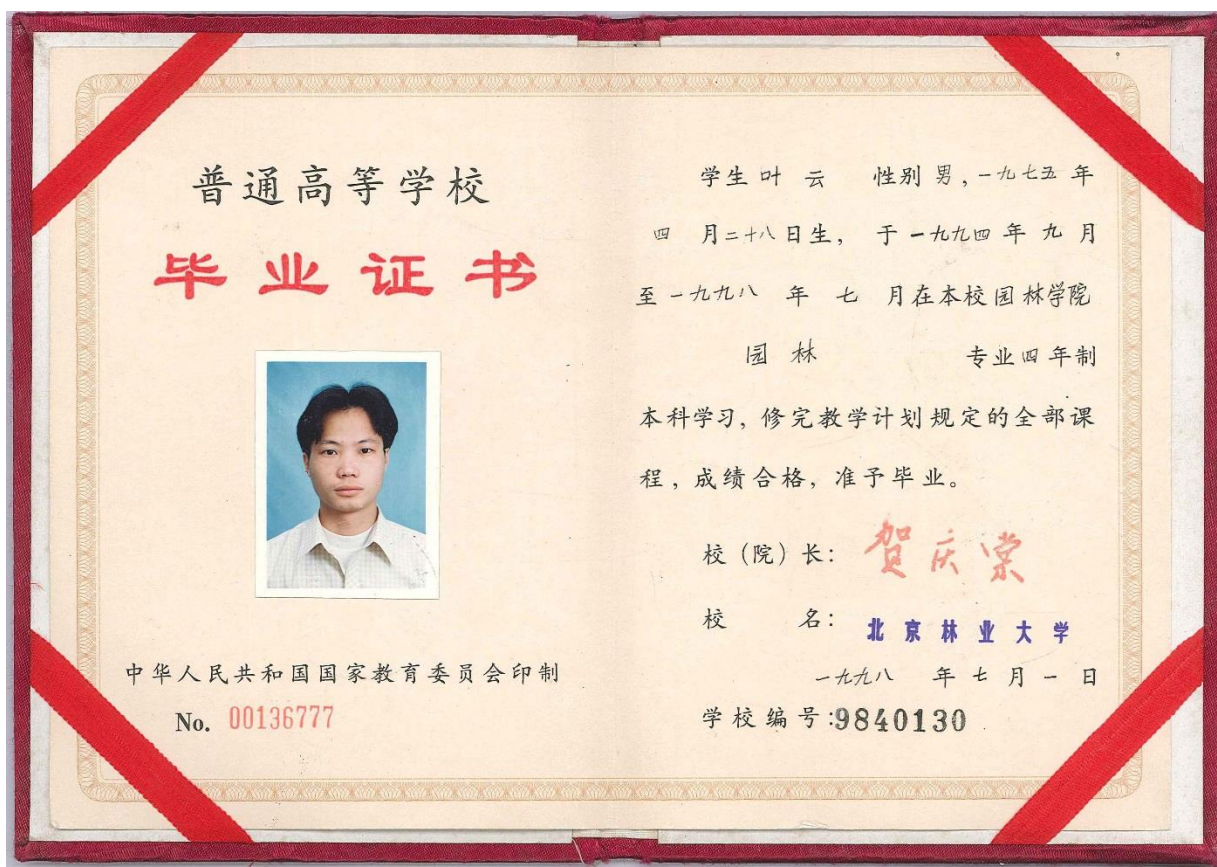 普通高等学校
毕业证书
中华人民共和国国家教育委员会印制
No. 00136777
学生叶云 性别男，一九七五年
四月二十八日生，于一九九四年九月
至一九九八年七月在本校园林学院
园林 专业四年制
本科学习，修完教学计划规定的全部课
程，成绩合格，准予毕业。
校（院）长：贺庆棠
校名：北京林业大学
一九九八年七月一日
学校编号：9840130